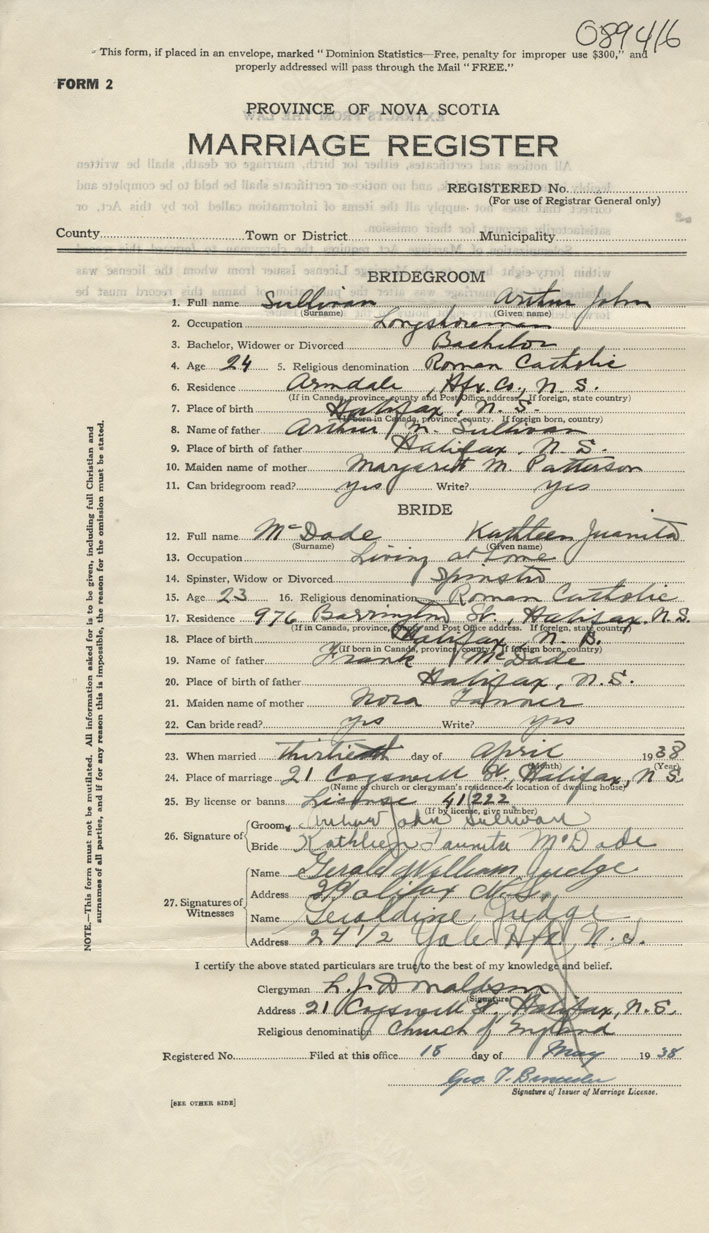 089416
"This form, if placed in an envelope, marked "Dominion Statistics—Free, penalty for improper use $300," and
properly addressed will pass through the Mail "FREE."
FORM 2
PROVINCE OF NOVA SCOTIA
MARRIAGE REGISTER
REGISTERED No.
(For use of Registrar General only)
County Town or District Municipality
BRIDEGROOM
1. Full name Sullivan Arthur John
(Surname) (Given name)
2. Occupation Longshoreman
3. Bachelor, Widower or Divorced Bachelor
4. Age 24 5. Religious denomination Roman Catholic
6. Residence Armdale, Hfx. Co., N. S.
(If in Canada, province, county and Post Office address. If foreign, state country)
7. Place of birth Halifax, N. S.
(If born in Canada, province, county. If foreign born, country)
8. Name of father Arthur M. Sullivan
9. Place of birth of father Halifax, N. S.
10. Maiden name of mother Margaret M. Patterson
11. Can bridegroom read? yes Write? yes
BRIDE
12. Full name McDade Kathleen Juanita
(Surname) (Given name)
13. Occupation Living at home
14. Spinster, Widow or Divorced Spinster
15. Age 23 16. Religious denomination Roman Catholic
17. Residence 976 Barrington St., Halifax, N. S.
(If in Canada, province, county and Post Office address. If foreign, state country)
18. Place of birth Halifax, N. S.
(If born in Canada, province, county. If foreign born, country)
19. Name of father Frank McDade
20. Place of birth of father Halifax, N. S.
21. Maiden name of mother Nora Tanner
22. Can bride read? yes Write? yes
23. When married thirtieth day of April 1938
(Month) (Year)
24. Place of marriage 21 Cogswell St., Halifax, N S.
(Name of church or clergyman's residence or location of dwelling house)
25. By license or banns License 41222
(If by license, give number)
26. Signature of Groom Arthur John Sullivan
Bride Kathleen Juanita McDade
27. Signatures of Witnesses
Name Gerald William Judge
Address Halifax N.S.
Name Geraldine Judge
Address 24 1/2 Yale Hfx, N. S.
I certify the above stated particulars are true to the best of my knowledge and belief.
Clergyman L. J. Donaldson
(Signature)
Address 21 Cogswell St, Halifax, N. S.
Religious denomination Church of England
Registered No. Filed at this office 18 day of May 1938
Geo. T.
Signature of Issuer of Marriage License.
[SEE OTHER SIDE]
NOTE.—This form must not be mutilated. All information asked for is to be given, including full Christian and
surnames of all parties, and if for any reason this is impossible, the reason for the omission must be stated.